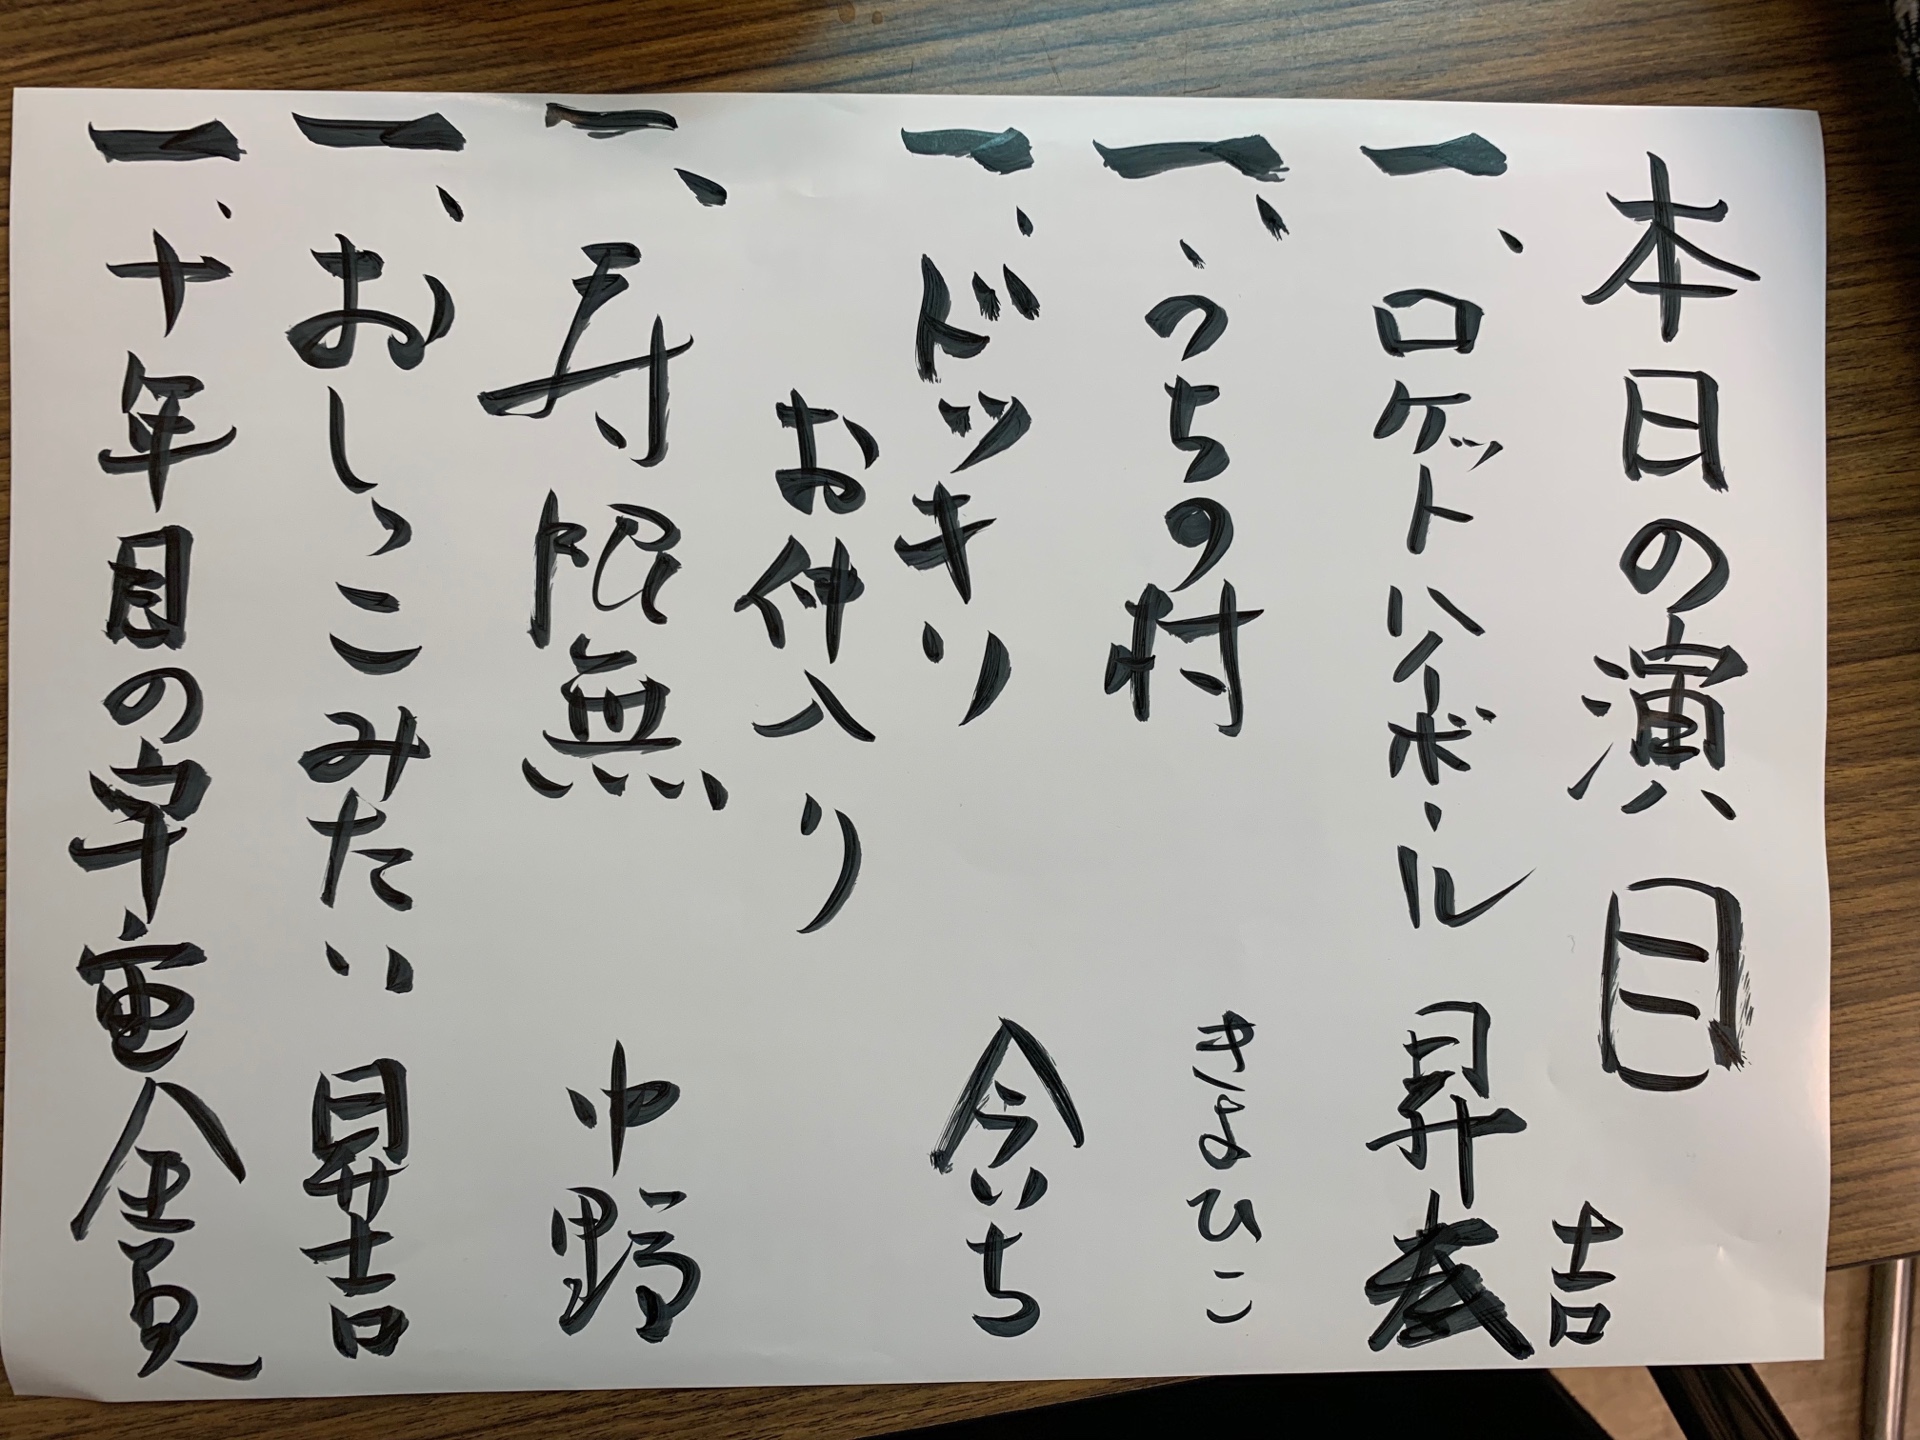 本日の演目
一、ロケットハイボール 昇吉
一、うちの村 きよひこ
一、ドッキリ 今いち
お仲入り
一、寿限無 中野
一、おしっこみたい 昇吉
一、十年目の宇宙 全員